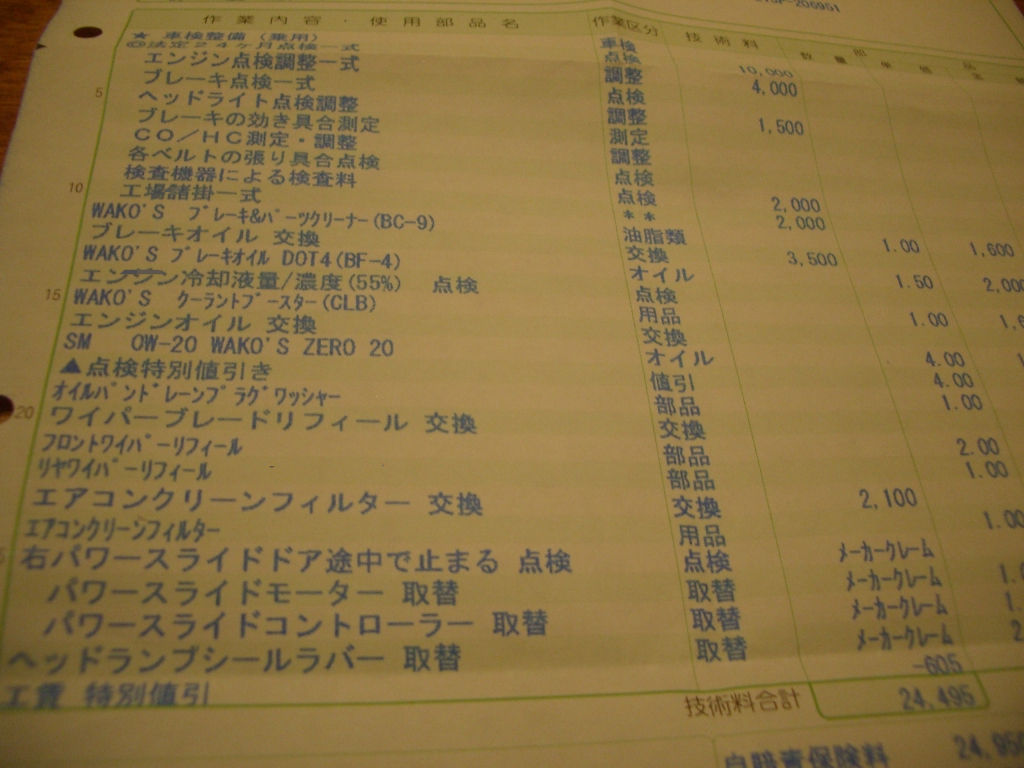 206951
作業内容・使用部品名 作業区分 技術料 数量 単価
★ 車検整備(乗用) 車検
◎法定24ヶ月点検一式 点検 10,000
エンジン点検調整一式 調整 4,000
ブレーキ点検一式 点検
ヘッドライト点検調整 調整 1,500
ブレーキの効き具合測定 測定
CO/HC測定・調整 調整
各ベルトの張り具合点検 点検
検査機器による検査料 点検 2,000
工場諸掛一式 ** 2,000
WAKO'S ブレーキ&パーツクリーナー(BC-9) 油脂類 1.00 1,600
ブレーキオイル 交換 交換 3,500
WAKO'S ブレーキオイル DOT4(BF-4) オイル 1.50
エンジン冷却液量/濃度(55%) 点検 点検
WAKO'S クーラントブースター(CLB) 用品 1.00
エンジンオイル 交換 交換
SM 0W-20 WAKO'S ZERO 20 オイル 4.00
▲点検特別値引き 値引 4.00
オイルパンドレーンプラグワッシャー 部品 1.00
ワイパーブレードリフィール 交換 交換
フロントワイパーリフィール 部品 2.00
リヤワイパーリフィール 部品 1.00
エアコンクリーンフィルター 交換 交換 2,100
エアコンクリーンフィルター 用品 1.00
右パワースライドドア途中で止まる 点検 点検 メーカークレーム
パワースライドモーター 取替 取替 メーカークレーム
パワースライドコントローラー 取替 取替 メーカークレーム
ヘッドランプシールラバー 取替 取替 メーカークレーム
工賃 特別値引 -605
技術料合計 24,495
自賠責保険料 24,950
5
10
15
20